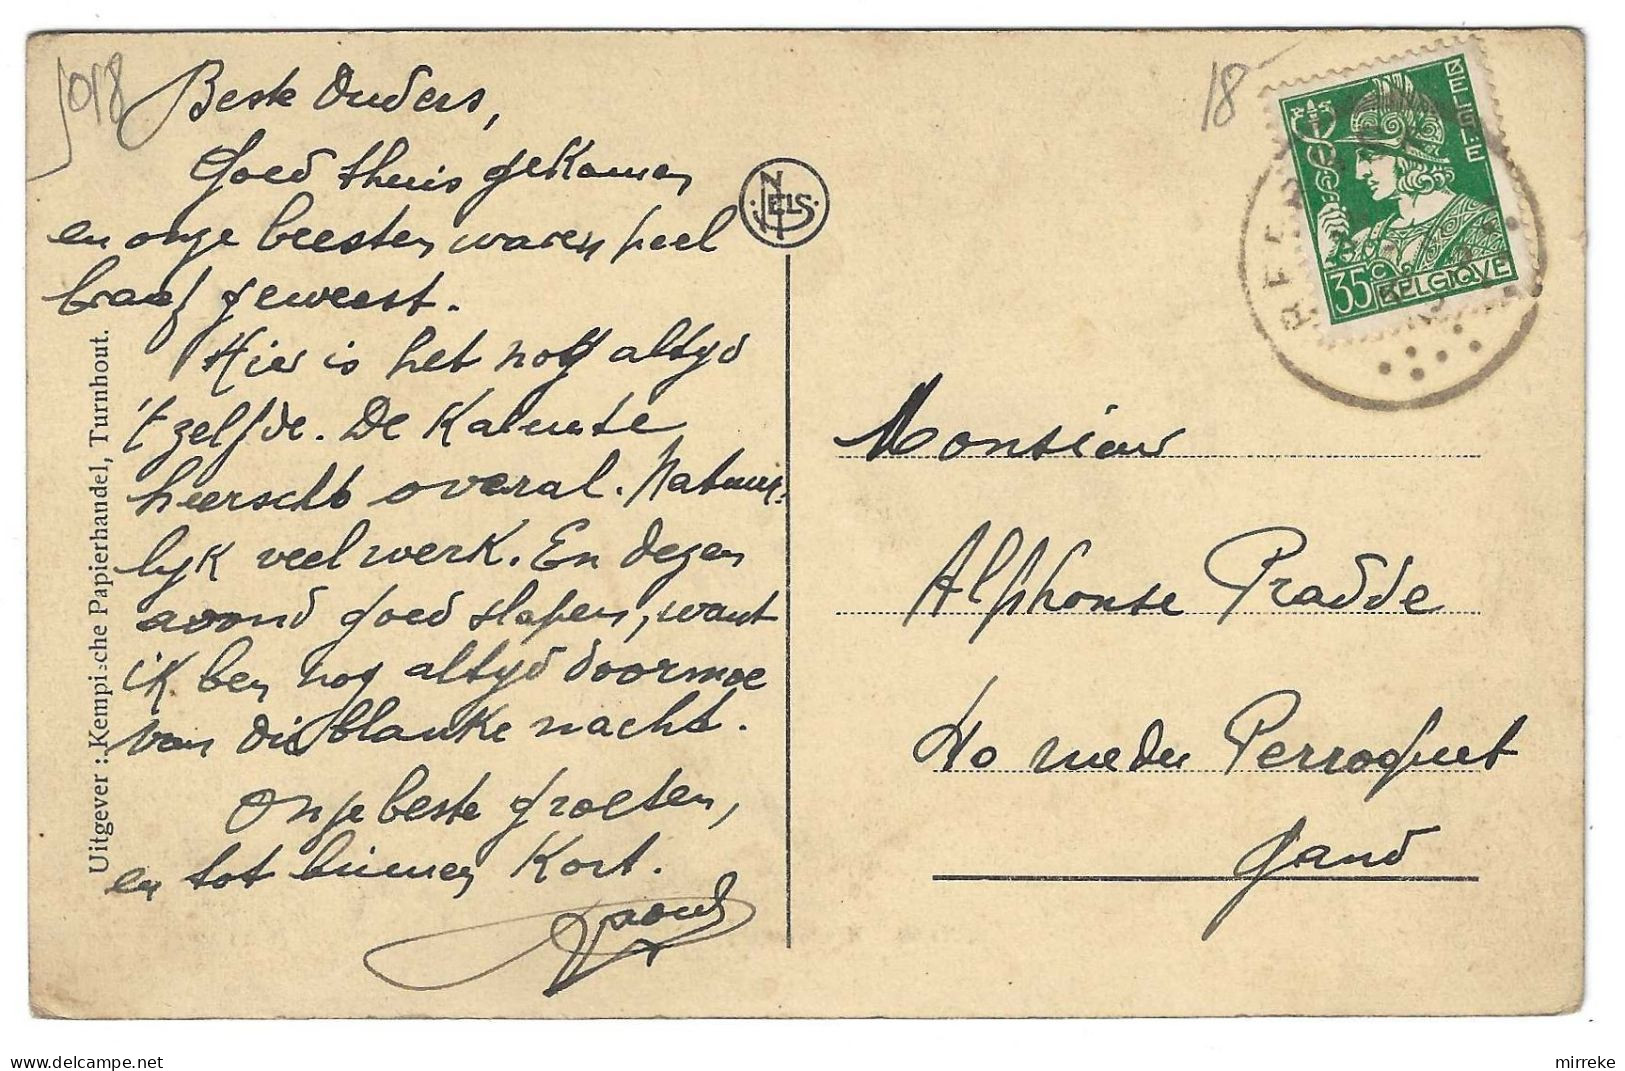 1018
Beste Ouders,
Goed thuis gekomen
en onze beesten waren heel
braaf geweest.
Hier is het nog altyd
't zelfde. De Kalmte
heerscht overal. Natuur-
lyk veel werk. En dezen
avond goed slapen, want
ik ben nog altyd doormoe
van die blanke nacht.
Onze beste groeten,
en tot binnen Kort.
Raoul
Uitgever : Kempische Papierhandel, Turnhout.
NELS
18
BELGIË
35c
BELGIQUE
Monsieur
Alphonse Pradde
40 rue du Perroquet
Gand
delcampe.net
mirreke